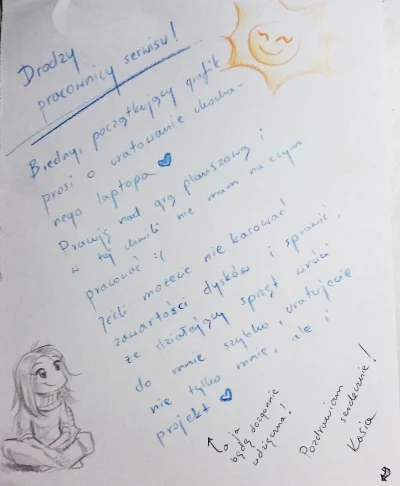 Drodzy
pracownicy serwisu!
Biedny, początkujący grafik
prosi o uratowanie ukocha-
nego laptopa
Pracuję nad grą planszową i
w tej chwili nie mam na czym
pracować :(
Jeśli możecie nie kasować
zawartości dysków i sprawić,
że działający sprzęt wróci
do mnie szybko, uratujecie
nie tylko mnie, ale i
projekt
a ja
będę dozgonnie
wdzięczna!
Pozdrawiam
serdecznie!
Kasia